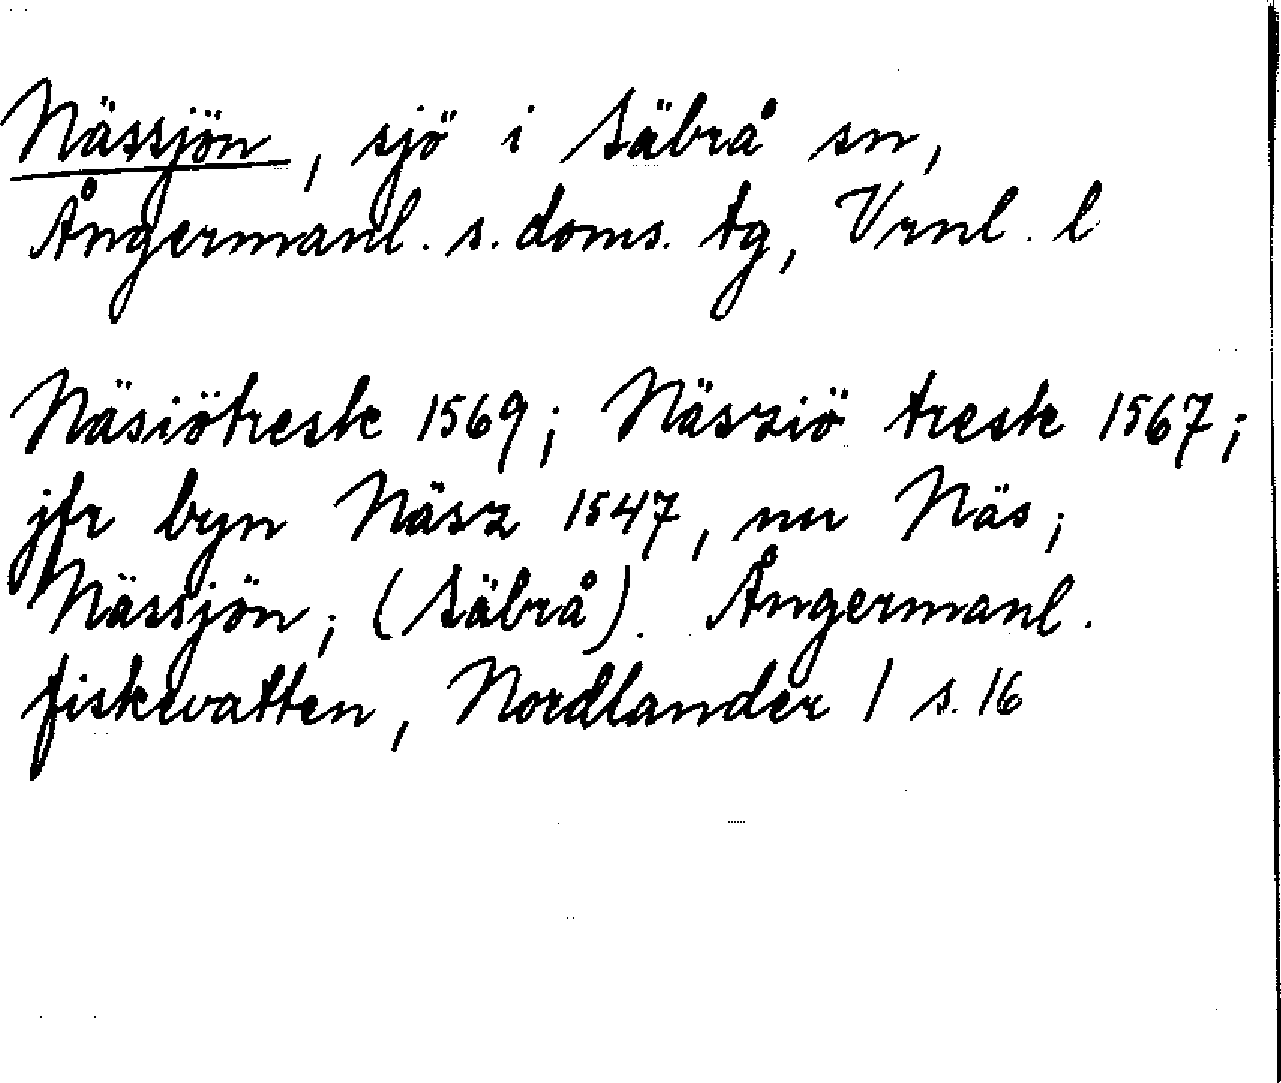 Nässjön, sjö i Säbrå sn,
Ångermanl. s. doms. tg, Vrnl. l
Näsiötresk 1569; Näsziö tresk 1567;
jfr byn Näsz 1547, nu Näs;
Nässjön, (Säbrå). Ångermanl.
fiskevatten, Nordlander / s. 16